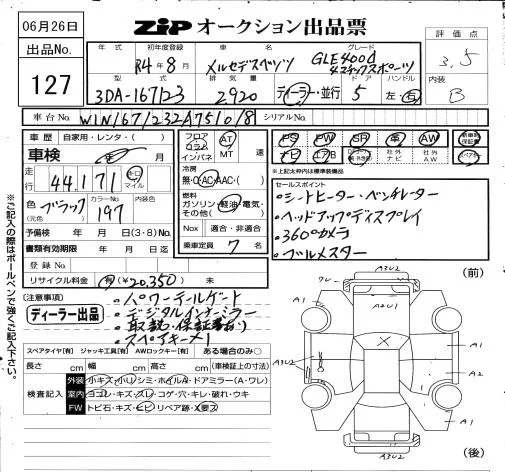 06月26日
ZIP オークション出品票
評価点
3.5
内装
B
出品No.
127
年式
初年度登録
R4年8月
車名
メルセデスベンツ
グレード
GLE400d
4マチックスポーツ
型式
3DA-167123
排気量
2920
ディーラー・並行
ドア
5
ハンドル
左・右
車台No.
W1N1671232A751018
シリアルNo.
車歴
自家用・レンタ・( )
車検
年 月
走行
44,171
キロ
マイル
色
(元色)
ブラック
カラーNo
197
内装色
予備検 年 月 日(3・8)No.
書類有効期限 年 月 日迄
登録No.
リサイクル料金 有(¥20,350) 未
フロア
コラム
インパネ
AT
MT
速
冷房
無・C・AC・AAC・( )
燃料
ガソリン・軽油・電気・
その他( )
Nox 適合・非適合
乗車定員 7 名
PS
PW
SR
革
AW
ナビ
エアB
社外
ナビ
社外
AW
新車時
保証書
*上記太枠内は標準装備品
セールスポイント
・シートヒーター・ベンチレーター
・ヘッドアップディスプレイ
・360°カメラ
・ブルメスター
(注意事項)
ディーラー出品
・パワーテールゲート
・デジタルインナーミラー
・取説・保証書あり
・スペアキー×1
スペアタイヤ[有] ジャッキ工具[有] AWロックキー[有] ある場合のみ○
長さ cm 幅 cm 高さ cm (車検証上の寸法)
検査記入
外装 小キズ・小凹・シミ・ホイルA・ドアミラー(A・ワレ)
室内 ヨゴレ・キズ・スレ・コゲ・穴・キレ・破れ・ウキ
FW トビ石・キズ・ヒビ・リペア跡・X要ス
※ご記入の際はボールペンで強くご記入下さい。
(前)
A3U2
A2U1
A1
A1
A1
A3U2
A2
A1
A1
A3U2
(後)